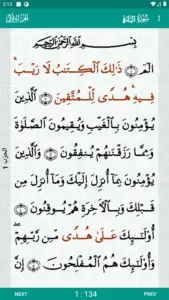 2:13
سُورَةُ البَقَرَةِ
الجزء الأول
بِسْمِ ٱللَّهِ ٱلرَّحْمَٰنِ ٱلرَّحِيمِ
الٓمٓ ۝١ ذَٰلِكَ ٱلْكِتَٰبُ لَا رَيْبَ ۛ
فِيهِ ۛ هُدًى لِّلْمُتَّقِينَ ۝٢ ٱلَّذِينَ
يُؤْمِنُونَ بِٱلْغَيْبِ وَيُقِيمُونَ ٱلصَّلَوٰةَ
وَمِمَّا رَزَقْنَٰهُمْ يُنفِقُونَ ۝٣ وَٱلَّذِينَ
يُؤْمِنُونَ بِمَآ أُنزِلَ إِلَيْكَ وَمَآ أُنزِلَ مِن
قَبْلِكَ وَبِٱلْءَاخِرَةِ هُمْ يُوقِنُونَ ۝٤
أُو۟لَٰٓئِكَ عَلَىٰ هُدًى مِّن رَّبِّهِمْ ۖ
وَأُو۟لَٰٓئِكَ هُمُ ٱلْمُفْلِحُونَ ۝٥
الحزب 1
NEXT
1 : 134
PREV